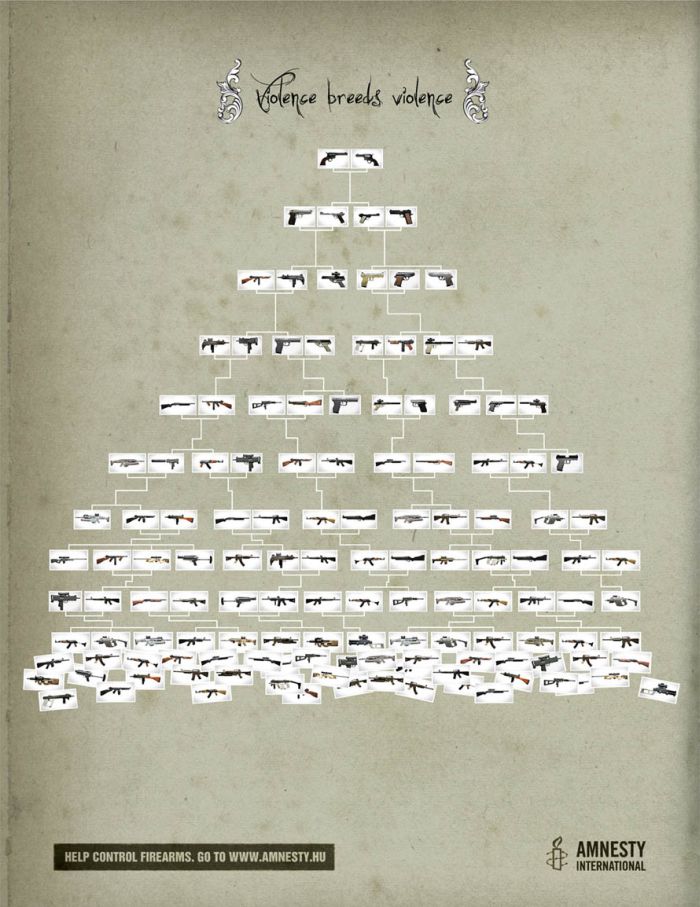 Violence breeds violence
HELP CONTROL FIREARMS. GO TO WWW.AMNESTY.HU
AMNESTY
INTERNATIONAL